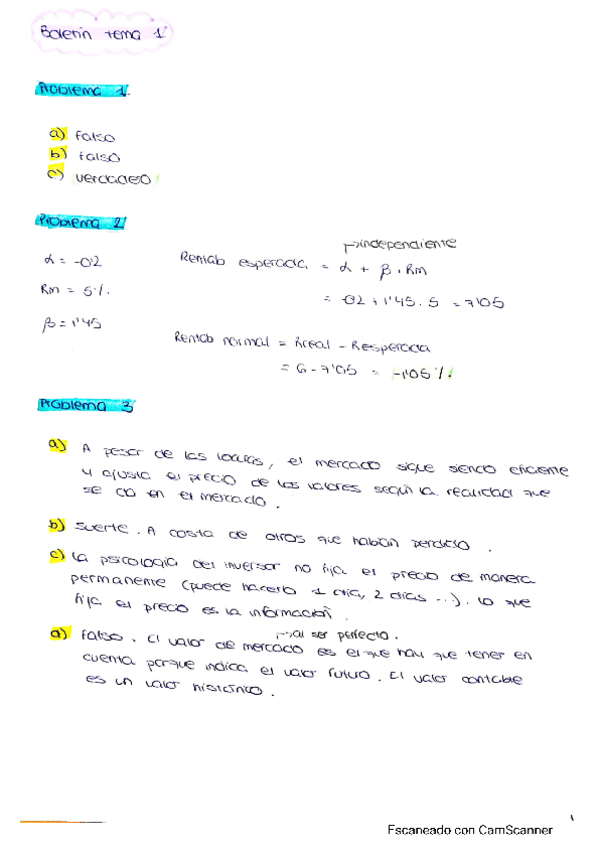 Boletín tema 1
Problema 1
a) falso
b) falso
c) verdadero
Problema 2
→independiente
α = -0'2 Rentab esperada = α + β · Rm
Rm = 5%. = -0'2 + 1'45 · 5 = 7'05
β = 1'45
Rentab normal = Rreal - Resperada
= 6 - 7'05 = -1'05%
Problema 3
a) A pesar de las locuras, el mercado sigue siendo eficiente
y ajusta el precio de los valores según la realidad que
se da en el mercado.
b) suerte. A costa de otros que habían perdido.
c) La psicología del inversor no fija el precio de manera
permanente (puede hacerlo 1 día, 2 días ...). Lo que
fija el precio es la información.
→al ser perfecto.
d) Falso. El valor de mercado es el que hay que tener en
cuenta porque indica el valor futuro. El valor contable
es un valor histórico.
Escaneado con CamScanner